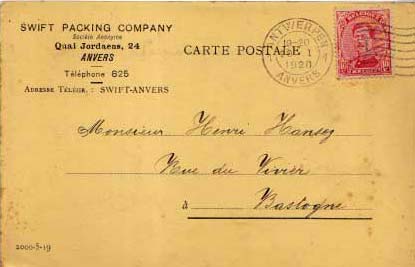 SWIFT PACKING COMPANY
Société Anonyme
Quai Jordaens, 24
ANVERS
Téléphone 625
ADRESSE TÉLÉGR. : SWIFT-ANVERS
CARTE POSTALE
ANTWERPEN 1
1920
ANVERS
Monsieur Henri Hansez
Rue du Vivier
à Bastogne
2000-5-19